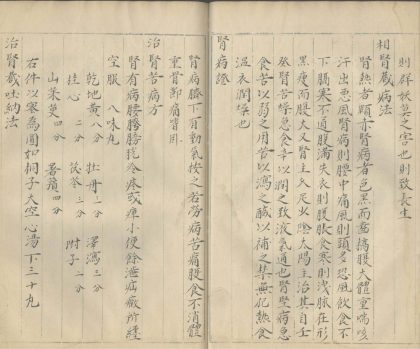 則群妖莫之害也致長生
相腎藏病法
腎熱者顋赤腎病者色黑而齒槁腹大體重喘咳
汗出惡風腎病則腰中痛風則頭多恐風飲食不
下膈寒不通腹滿失衣則脹食寒則洩脈在形
黑瘦而腹大又腎主冬足少陰太陽主治其日壬
癸腎苦燥急食辛以潤之致液氣通也腎堅病急
食苦以弱之用苦以瀉之鹹以補之禁無犯熱食
溫衣潤燥也
腎病證
腎病臍下有動氣按之若勞病苦痛腹食不消體
重骨節痛皆用
治腎苦病方
腎有病腰膀胱冷疼或痺小便餘瀝疝瘕所經
空服 八味丸
乾地黃 八分 牡丹 二分 澤瀉 三分
桂心 二分 茯苓 三分 附子 二分
山茱萸 四分 薯蕷 四分
右件以蜜為圓如桐子大空心湯下三十九
治腎藏吐納法